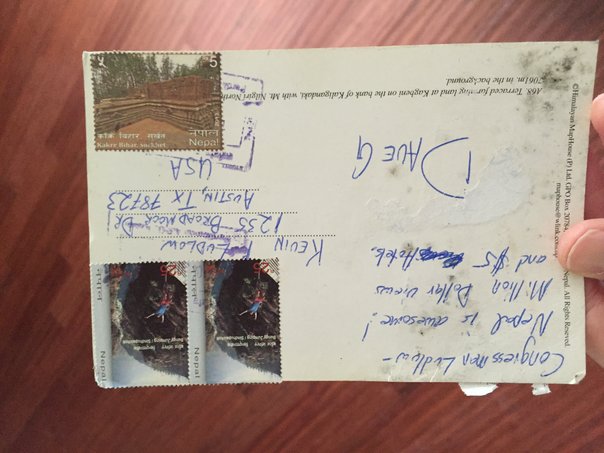 Congressman Ludlow -
Nepal is awesome!
Million Dollar views
and $5 Hotels.
DAVE G
KEVIN LUDLOW
1235 BROADMOOR DR
AUSTIN, TX 78723
USA
168. Terraced farming land at Kagbeni on the bank of Kaligandaki, with Mt. Nilgiri North
7061m. in the background.
©Himalayan MapHouse (P) Ltd. GPO Box 20784
Nepal. All Rights Reseved.
maphouse@wlink.com
5
नेपाल
Nepal
Kakre Bihar, Surkhet
25
Bungy Jumping Sindhupalchok
Nepal
नेपाल
25
Bungy Jumping Sindhupalchok
Nepal
नेपाल